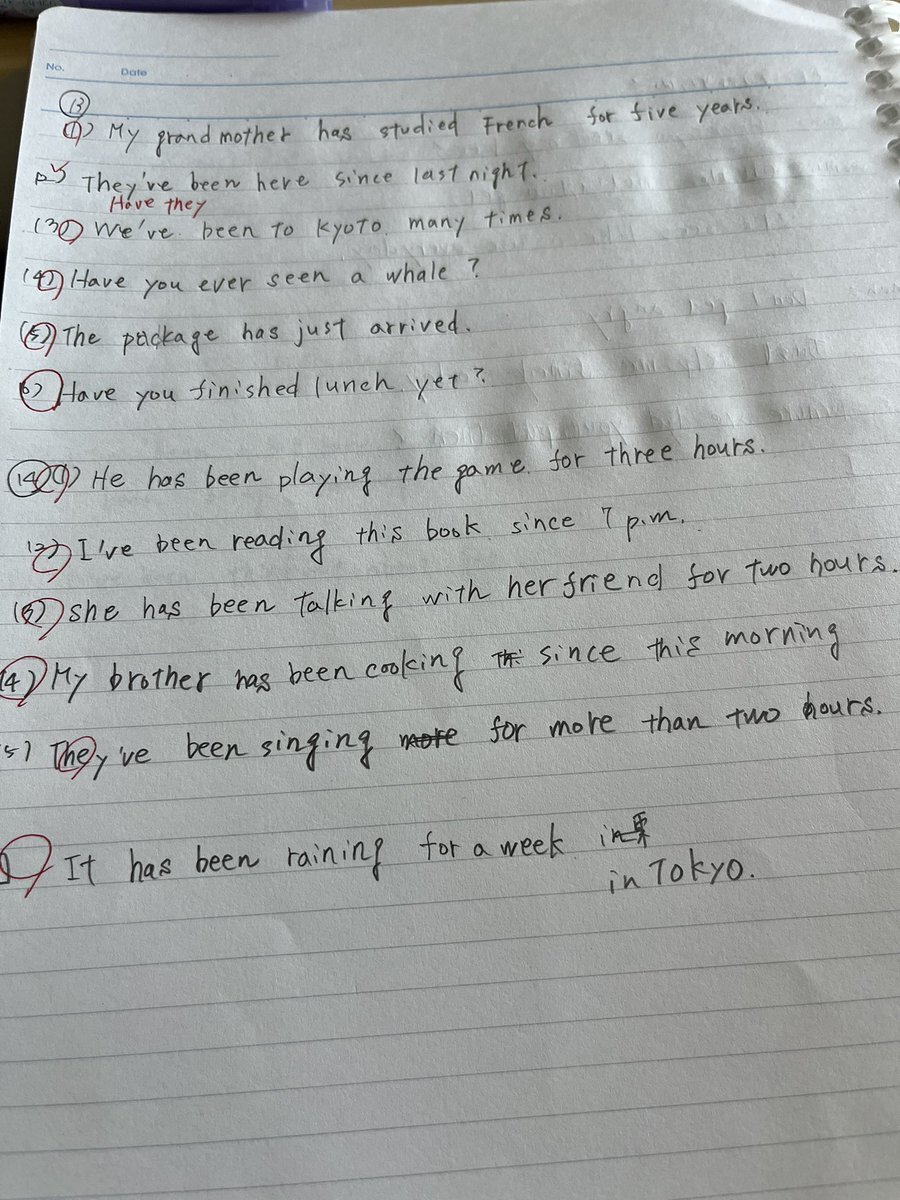 No.
Date
13
(1) My grandmother has studied French for five years.
They've been here since last night.
Have they
(3) We've been to Kyoto many times.
(4) Have you ever seen a whale?
(5) The package has just arrived.
6) Have you finished lunch yet?
14 (1) He has been playing the game for three hours.
(2) I've been reading this book since 7 p.m.
(3) she has been talking with her friend for two hours.
(4) My brother has been cooking since this morning
5) They've been singing more for more than two hours.
It has been raining for a week in
in Tokyo.